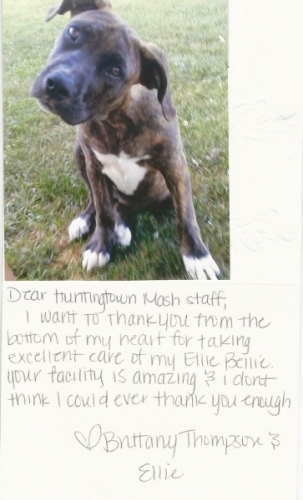 Dear Huntingtown Mash staff,
I want to thank you from the
bottom of my heart for taking
excellent care of my Ellie Bellie.
your facility is amazing & i dont
think I could ever thank you enough
♡Brittany Thompson &
Ellie